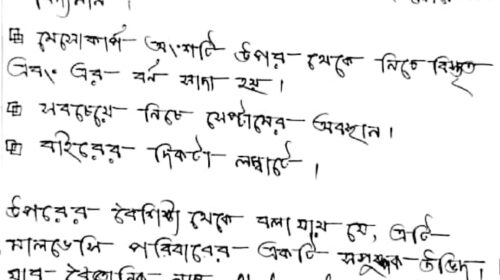 মেসোকার্প অংশটি উপর থেকে নিচে বিস্তৃত
এবং এর বর্ন সাদা হয়।
সবচেয়ে নিচে সেপ্টামের অবস্থান।
বহিরের দিকটা লম্বাটে।
উপরের বৈশিষ্ট্য থেকে বলা যায় যে, এটি
মালভেসি পরিবারের একটি সপুষ্পক উদ্ভিদ।
যার বৈজ্ঞানিক নাম